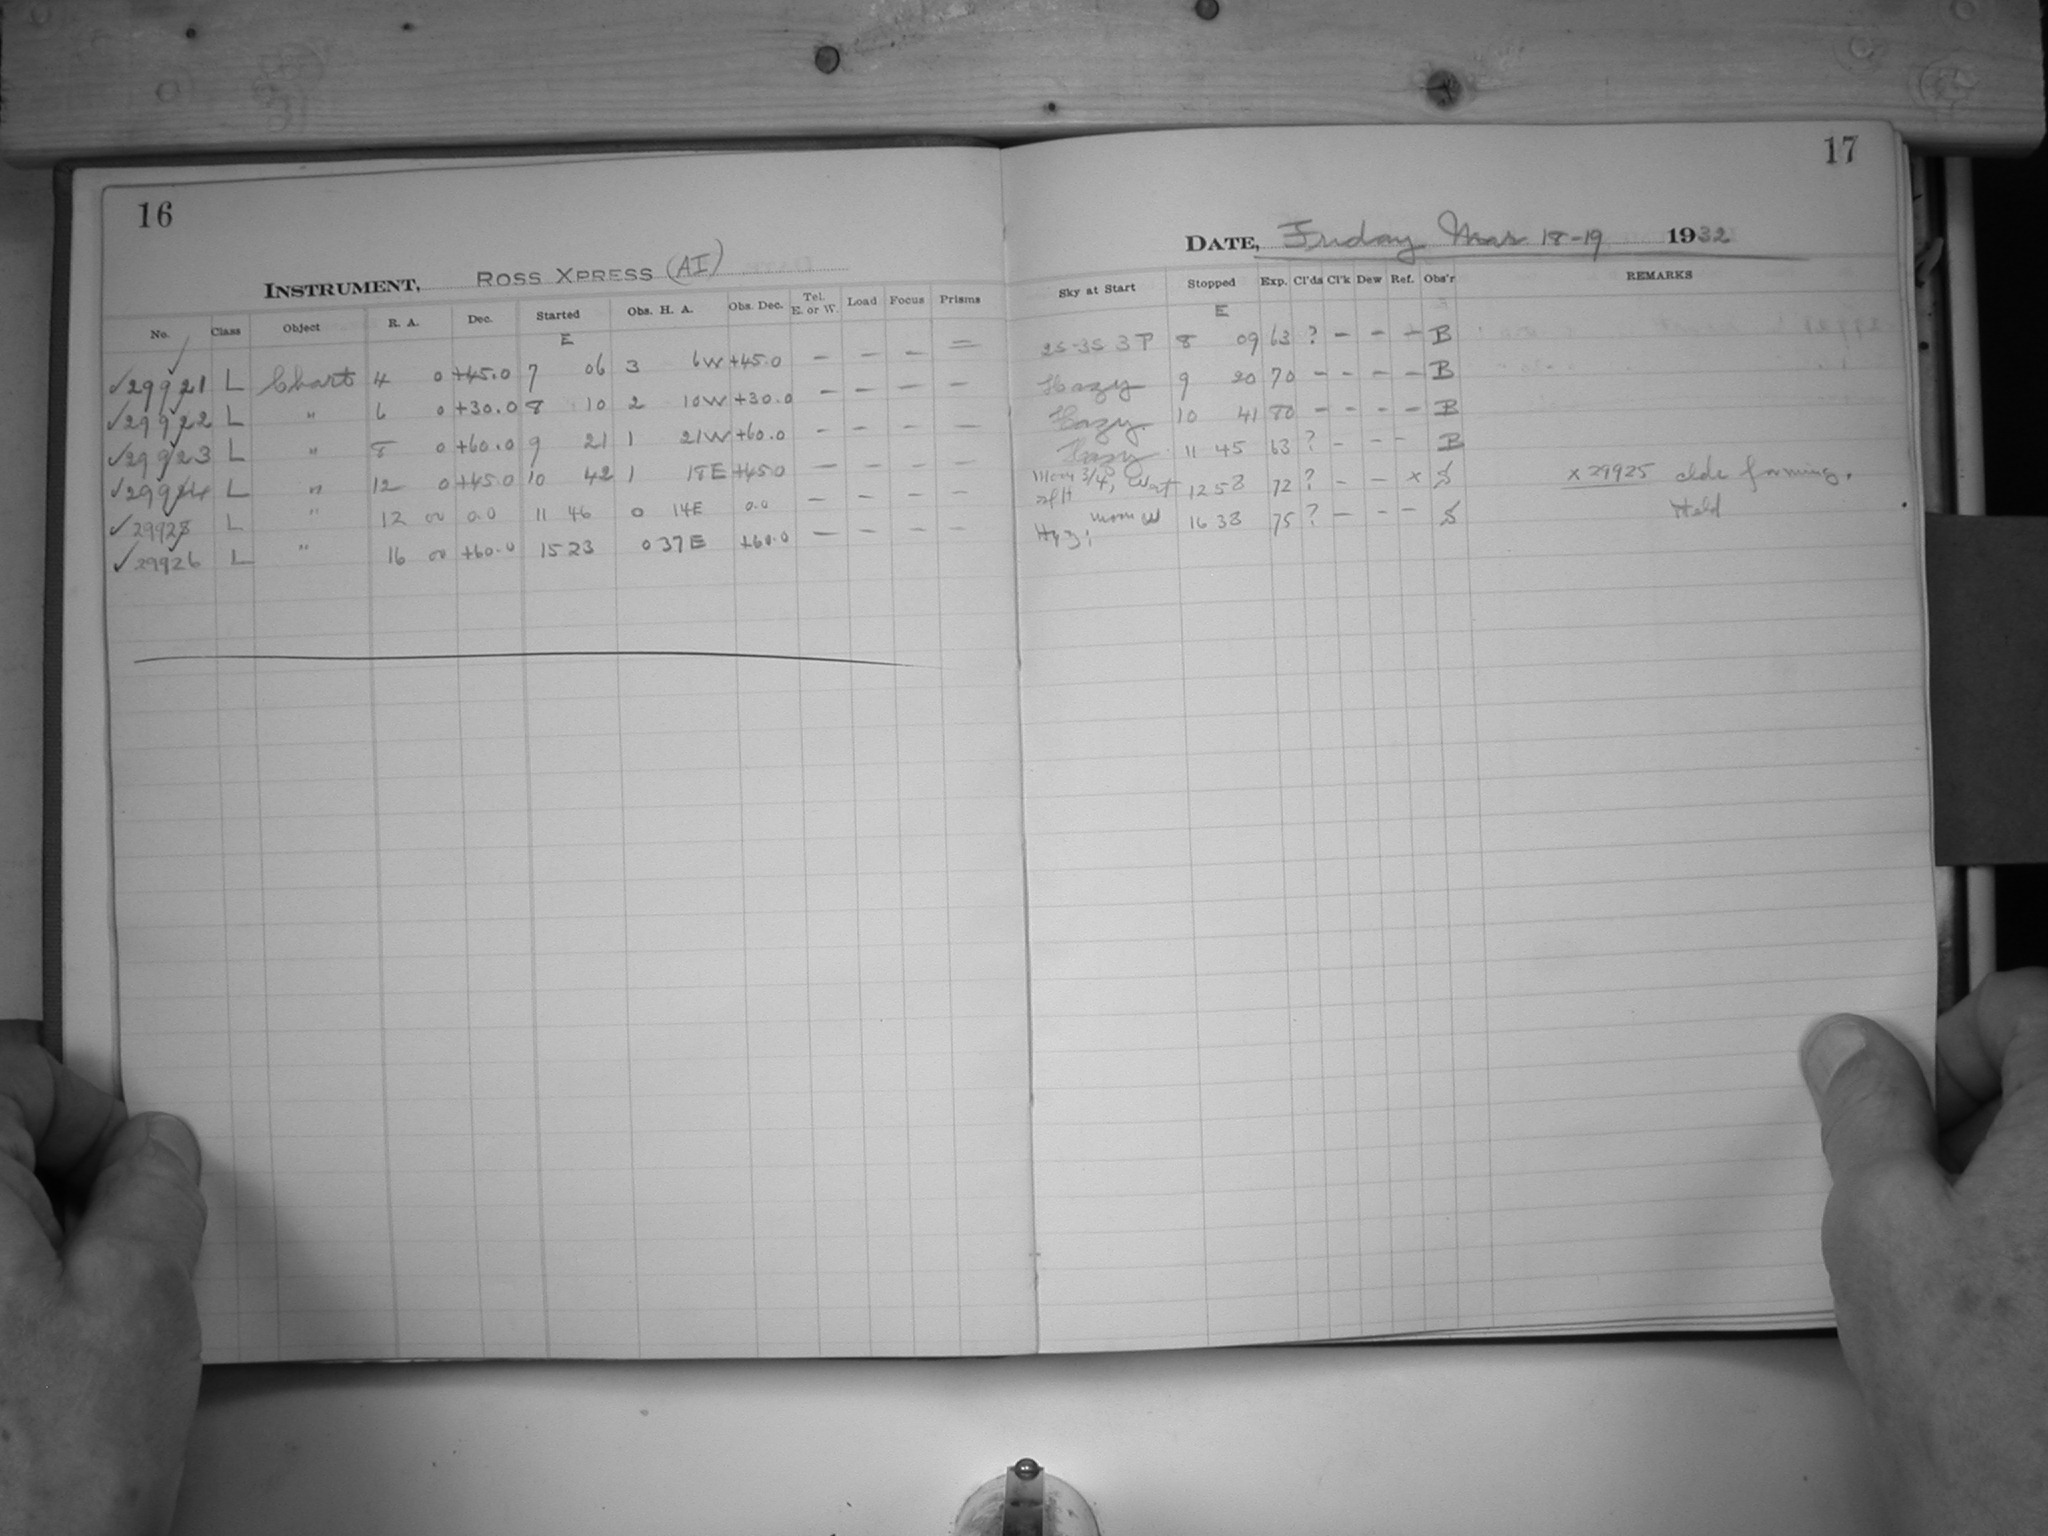 16
INSTRUMENT, ROSS XPRESS (AI)
No. Class Object R. A. Dec. Started Obs. H. A. Obs. Dec. Tel. E. or W. Load Focus Prisms
E
✓29921 L Chart 4 0 +45.0 7 06 3 6W +45.0 — — — —
✓29922 L " 6 0 +30.0 8 10 2 10W +30.0 — — — —
✓29923 L " 8 0 +60.0 9 21 1 21W +60.0 — — — —
✓29924 L " 12 0 +45.0 10 42 1 18E +45.0 — — — —
✓29925 L " 12 00 0.0 11 46 0 14E 0.0 — — — —
✓29926 L " 16 00 +60.0 15 23 0 37E +60.0 — — — —
17
DATE, Friday Mar 18-19 1932
Sky at Start Stopped Exp. Cl'ds Cl'k Dew Ref. Obs'r REMARKS
E
2S-3S 3P 8 09 63 ? — — — B
Hazy 9 20 70 — — — — B
Hazy 10 41 80 — — — — B
Hazy 11 45 63 ? — — — B
Moon 3/4, West 12 58 72 ? — — x S x 29925 clds forming.
Moon W 16 38 75 ? — — — S Held